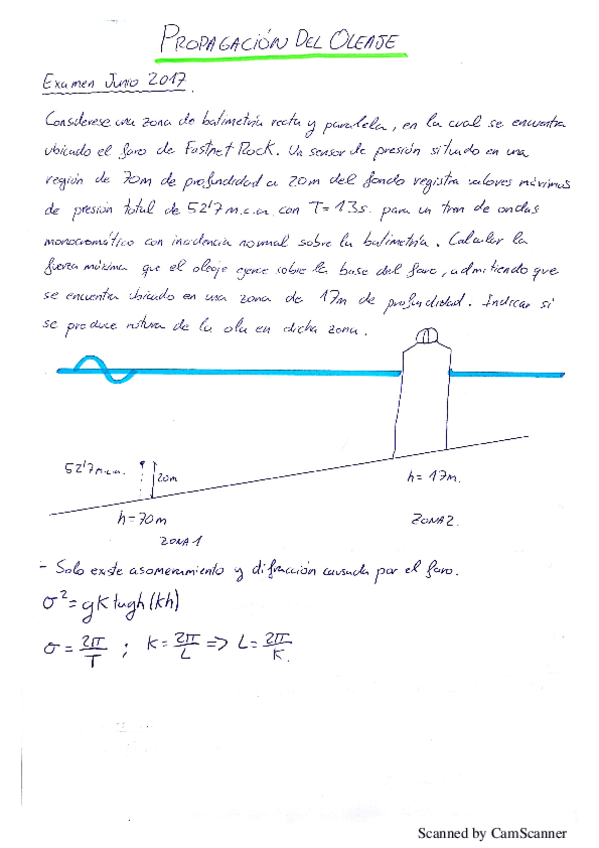 PROPAGACIÓN DEL OLEAJE
Examen Junio 2017.
Considerese una zona de batimetría recta y paralela, en la cual se encuentra
ubicado el faro de Fastnet Rock. Un sensor de presión situado en una
región de 70m de profundidad a 20m del fondo registra valores máximos
de presión total de 52'7 m.c.a. con T=13s. para un tren de ondas
monocromático con incidencia normal sobre la batimetría. Calcular la
fuerza máxima que el oleaje ejerce sobre la base del faro, admitiendo que
se encuentra ubicado en una zona de 17m de profundidad. Indicar si
se produce rotura de la ola en dicha zona.
52'7 m.c.a. 20m
h=17m.
h=70m
ZONA 2.
ZONA 1
- Solo existe asomeramiento y difracción causada por el faro.
σ²=gktugh(kh)
σ=2π/T ; K=2π/L => L=2π/K.
Scanned by CamScanner